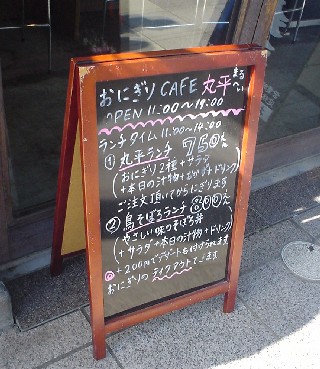 おにぎり CAFE 丸平 まるへい
OPEN 11:00〜19:00
ランチタイム 11:00〜14:00
① 丸平ランチ 750えん
(おにぎり2種+サラダ
+本日の汁物+おかず+ドリンク)
ご注文頂いてからにぎります
② 鳥そぼろランチ 800えん
やさしい味のそぼろ丼
(+サラダ+本日の汁物+ドリンク)
+200円でデザートを付けられます
おにぎりのテイクアウトできます